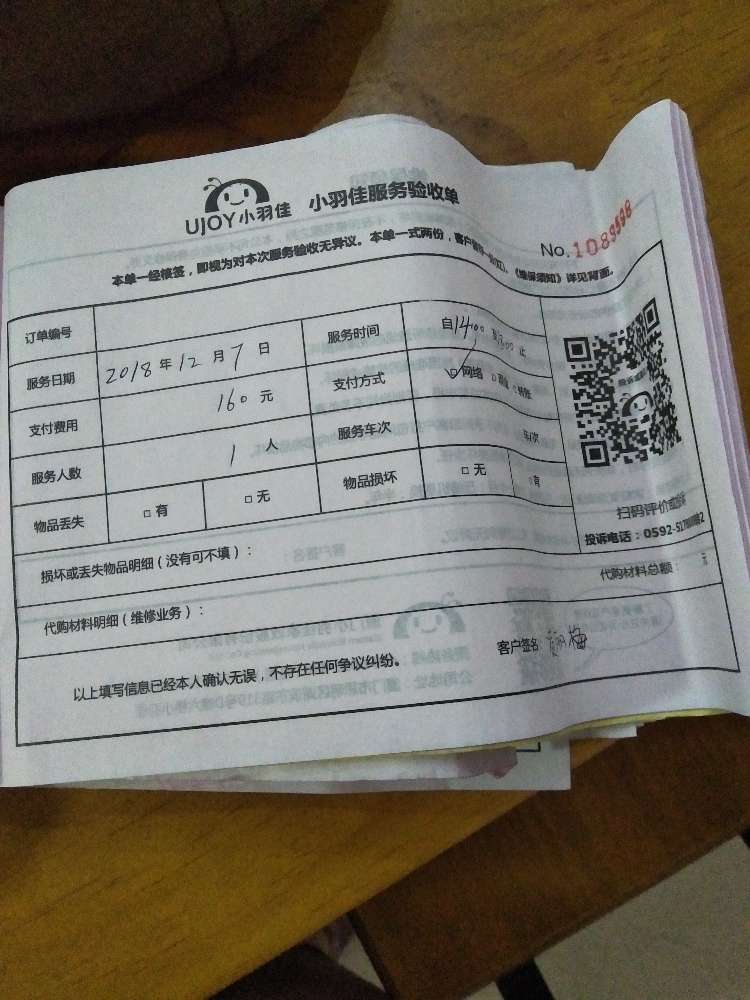 UJOY小羽佳 小羽佳服务验收单
No.1089598
本单一经核签，即视为对本次服务验收无异议。本单一式两份，客户留存一份，《维保须知》详见背面。
订单编号
服务日期 2018年12月7日 服务时间 自14:00 到 止
支付费用 160元 支付方式 网络
服务人数 1人 服务车次 车/次
物品丢失 □有 □无 物品损坏 □无 □有
扫码评价或投诉
投诉电话：0592-
损坏或丢失物品明细（没有可不填）：
代购材料明细（维修业务）： 代购材料总额： 元
以上填写信息已经本人确认无误，不存在任何争议纠纷。 客户签名